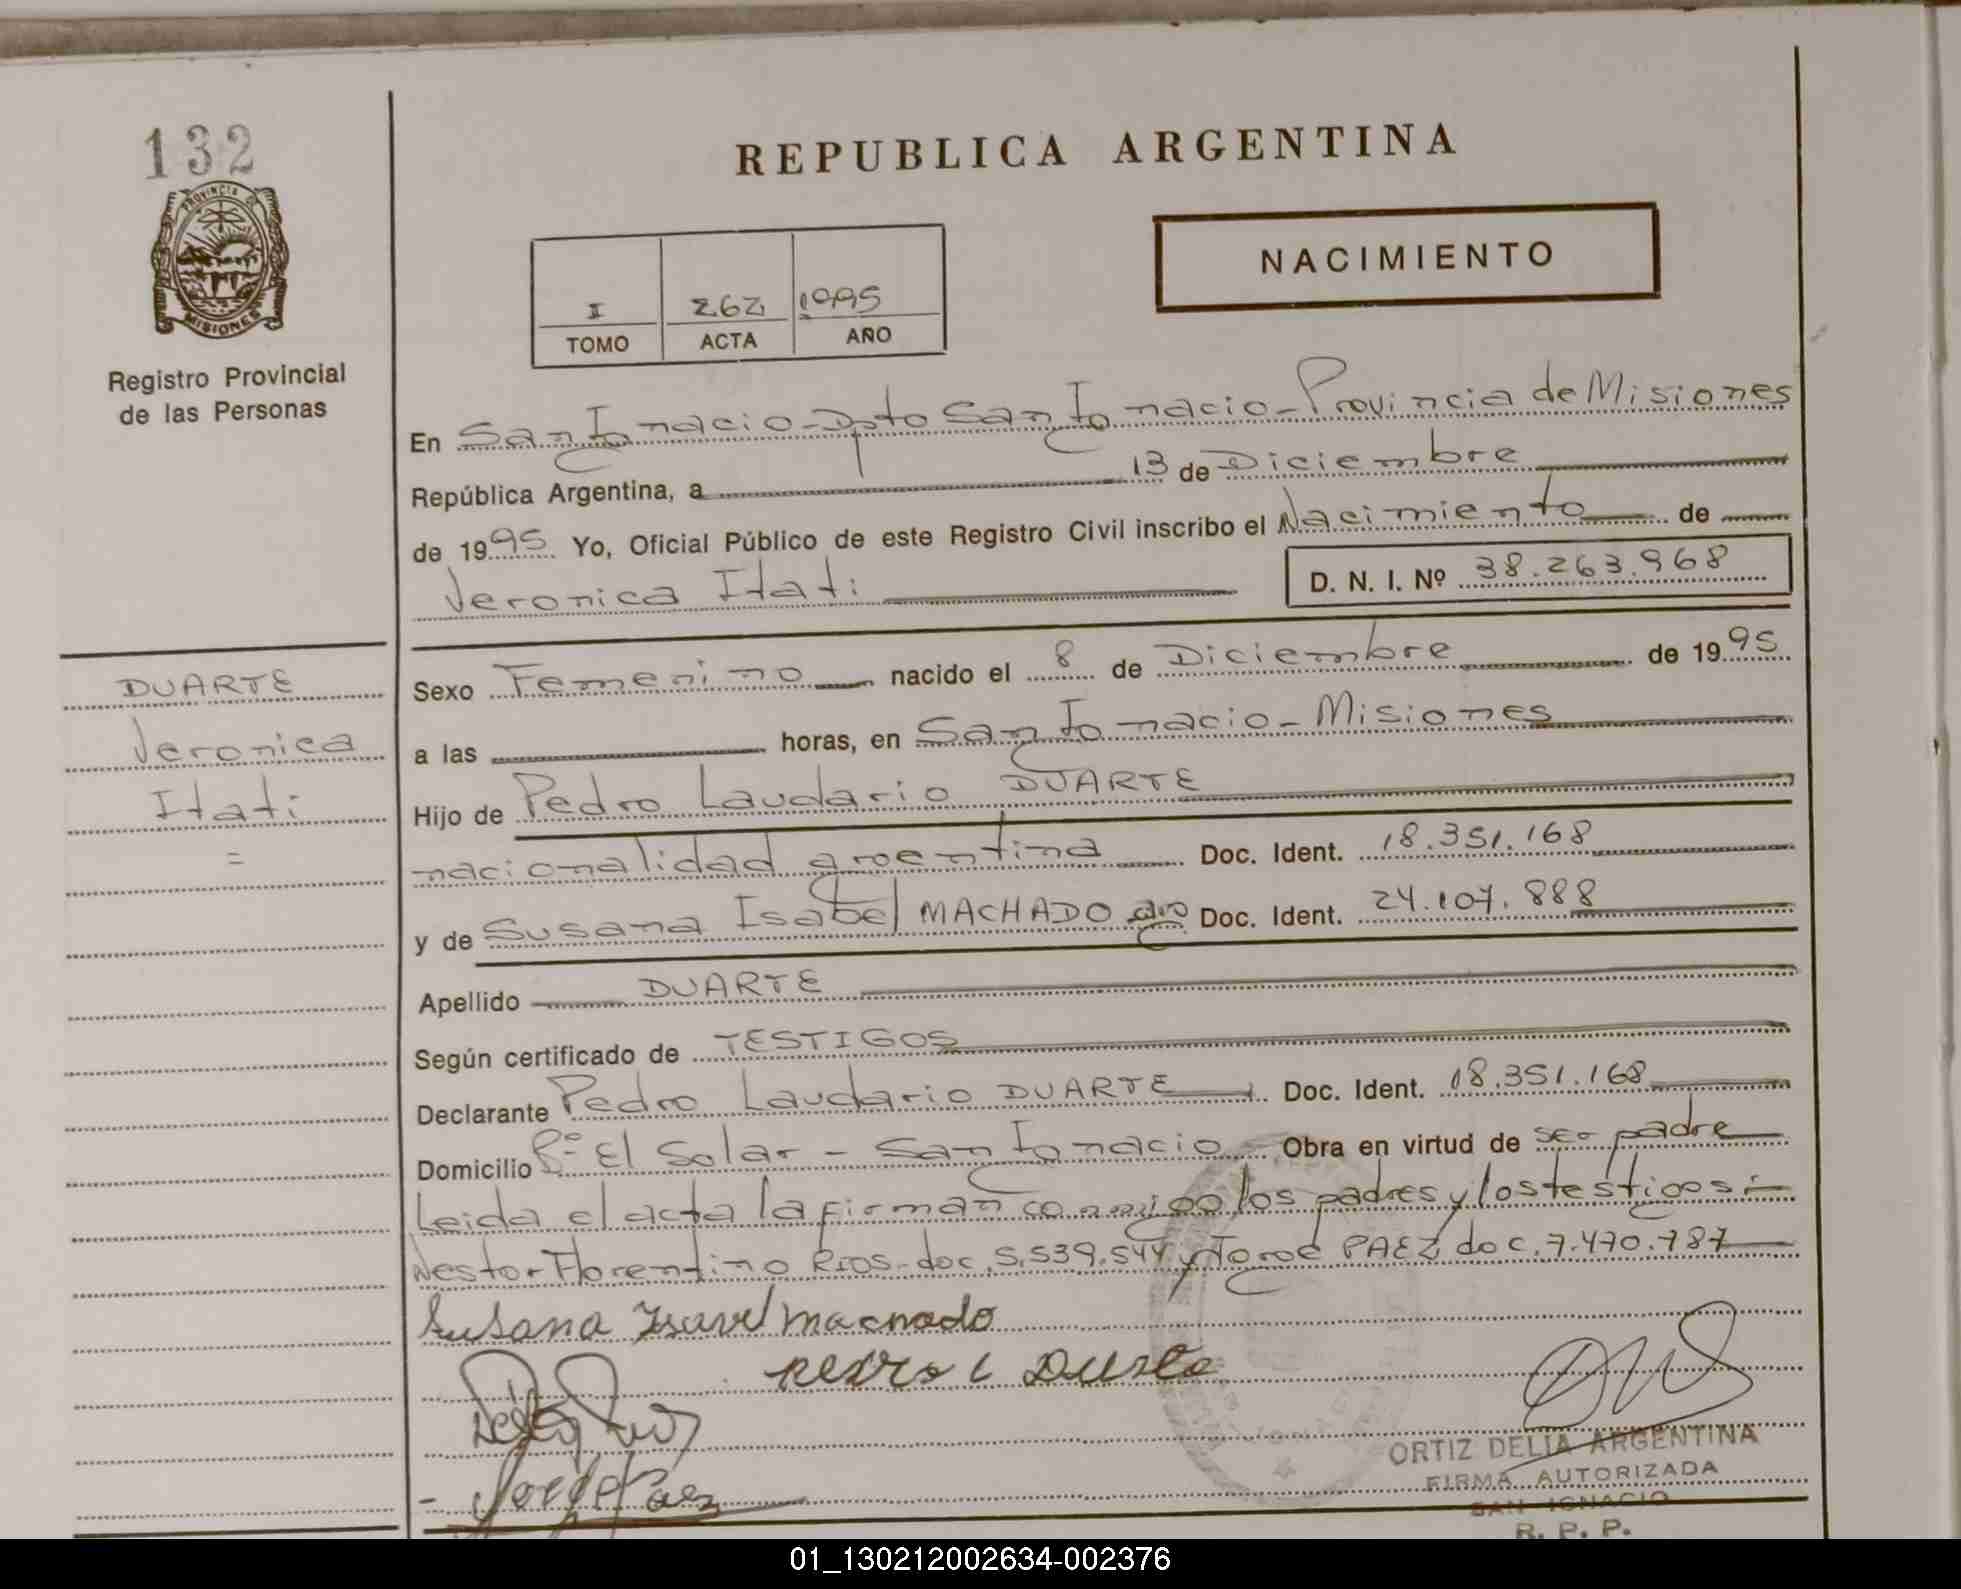 132
PROVINCIA
MISIONES
Registro Provincial
de las Personas
REPUBLICA ARGENTINA
NACIMIENTO
I 262 1995
TOMO ACTA AÑO
En San Ignacio - Dpto San Ignacio - Provincia de Misiones
República Argentina, a 13 de Diciembre
de 1995 Yo, Oficial Público de este Registro Civil inscribo el Nacimiento de
Veronica Itati D. N. I. Nº 38.263.968
DUARTE
Veronica
Itati
=
Sexo Femenino nacido el 8 de Diciembre de 1995
a las horas, en San Ignacio - Misiones
Hijo de Pedro Laudario DUARTE
nacionalidad argentina Doc. Ident. 18.351.168
y de Susana Isabel MACHADO arg Doc. Ident. 24.107.888
Apellido DUARTE
Según certificado de TESTIGOS
Declarante Pedro Laudario DUARTE Doc. Ident. 18.351.168
Domicilio Bº El Solar - San Ignacio Obra en virtud de ser padre
Leida el acta la firman conmigo los padres y los testigos:
Nestor Florentino RIOS - doc. 5.539.544 y Jorge PAEZ doc. 7.470.787
Susana Isavel Machado
Pedro L Duarte
Jorge Paez
ORTIZ DELIA ARGENTINA
FIRMA AUTORIZADA
SAN IGNACIO
R. P. P.
01_130212002634-002376